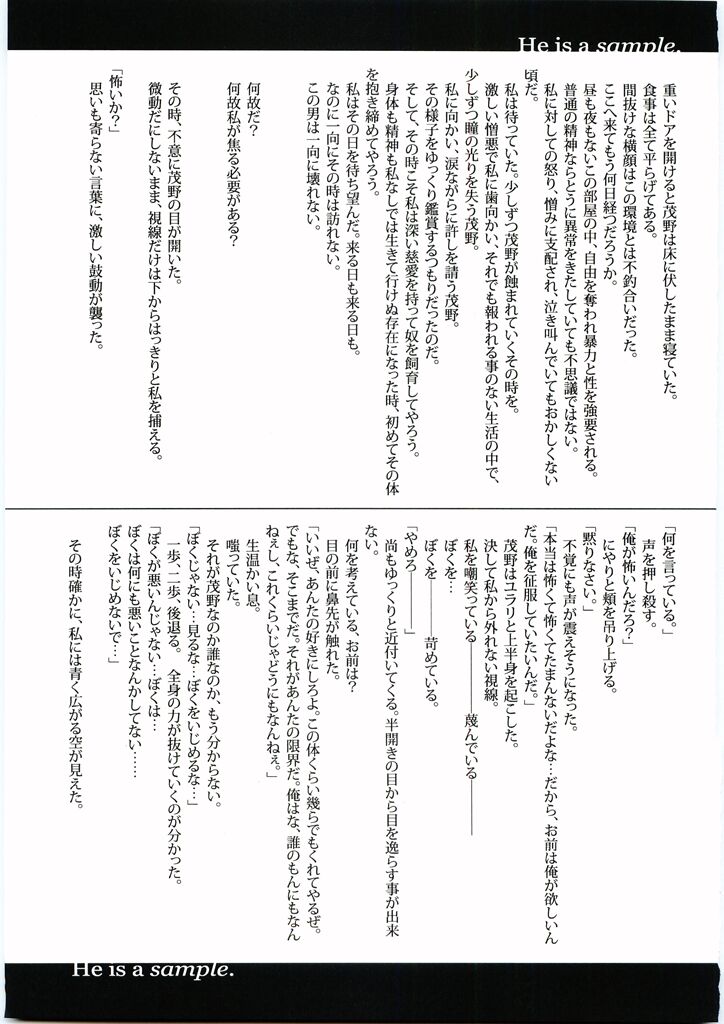 He is a sample.
重いドアを開けると茂野は床に伏したまま寝ていた。
食事は全て平らげてある。
間抜けな横顔はこの環境とは不釣合いだった。
ここへ来てもう何日経つだろうか。
昼も夜もないこの部屋の中、自由を奪われ暴力と性を強要される。
普通の精神ならとうに異常をきたしていても不思議ではない。
私に対しての怒り、憎みに支配され、泣き叫んでいてもおかしくない
頃だ。
私は待っていた。少しずつ茂野が蝕まれていくその時を。
激しい憎悪で私に歯向かい、それでも報われる事のない生活の中で、
少しずつ瞳の光りを失う茂野。
私に向かい、涙ながらに許しを請う茂野。
その様子をゆっくり鑑賞するつもりだったのだ。
そして、その時こそ私は深い慈愛を持って奴を飼育してやろう。
身体も精神も私なしでは生きて行けぬ存在になった時、初めてその体
を抱き締めてやろう。
私はその日を待ち望んだ。来る日も来る日も。
なのに一向にその時は訪れない。
この男は一向に壊れない。
何故だ?
何故私が焦る必要がある?
その時、不意に茂野の目が開いた。
微動だにしないまま、視線だけは下からはっきりと私を捕える。
「怖いか?」
思いも寄らない言葉に、激しい鼓動が襲った。
「何を言っている。」
声を押し殺す。
「俺が怖いんだろ?」
にやりと頬を吊り上げる。
「黙りなさい。」
不覚にも声が震えそうになった。
「本当は怖くて怖くてたまんないだよな…だから、お前は俺が欲しいん
だ。俺を征服していたいんだ。」
茂野はユラリと上半身を起こした。
決して私から外れない視線。
私を嘲笑っている――――蔑んでいる――――
ぼくを…
ぼくを――――苛めている。
「やめろ――――」
尚もゆっくりと近付いてくる。半開きの目から目を逸らす事が出来
ない。
何を考えている、お前は?
目の前に鼻先が触れた。
「いいぜ、あんたの好きにしろよ。この体くらい幾らでもくれてやるぜ。
でもな、そこまでだ。それがあんたの限界だ。俺はな、誰のもんにもなん
ねぇし、これくらいじゃどうにもなんねぇ。」
生温かい息。
嗤っていた。
それが茂野なのか誰なのか、もう分からない。
「ぼくじゃない…見るな…ぼくをいじめるな…」
一歩、二歩、後退る。 全身の力が抜けていくのが分かった。
「ぼくが悪いんじゃない…ぼくは…
ぼくは何にも悪いことなんかしてない……
ぼくをいじめないで…」
その時確かに、私には青く広がる空が見えた。
He is a sample.